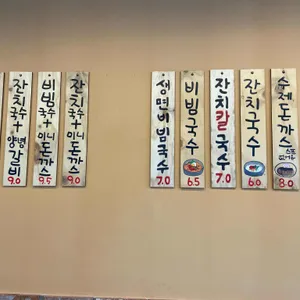 잔치국수+양념갈비 9.0
비빔국수+미니돈까스 9.5
잔치국수+미니돈까스 9.0
생면비빔국수 7.0
비빔국수 6.5
잔치칼국수 7.0
잔치국수 6.0
수제돈까스 8.0